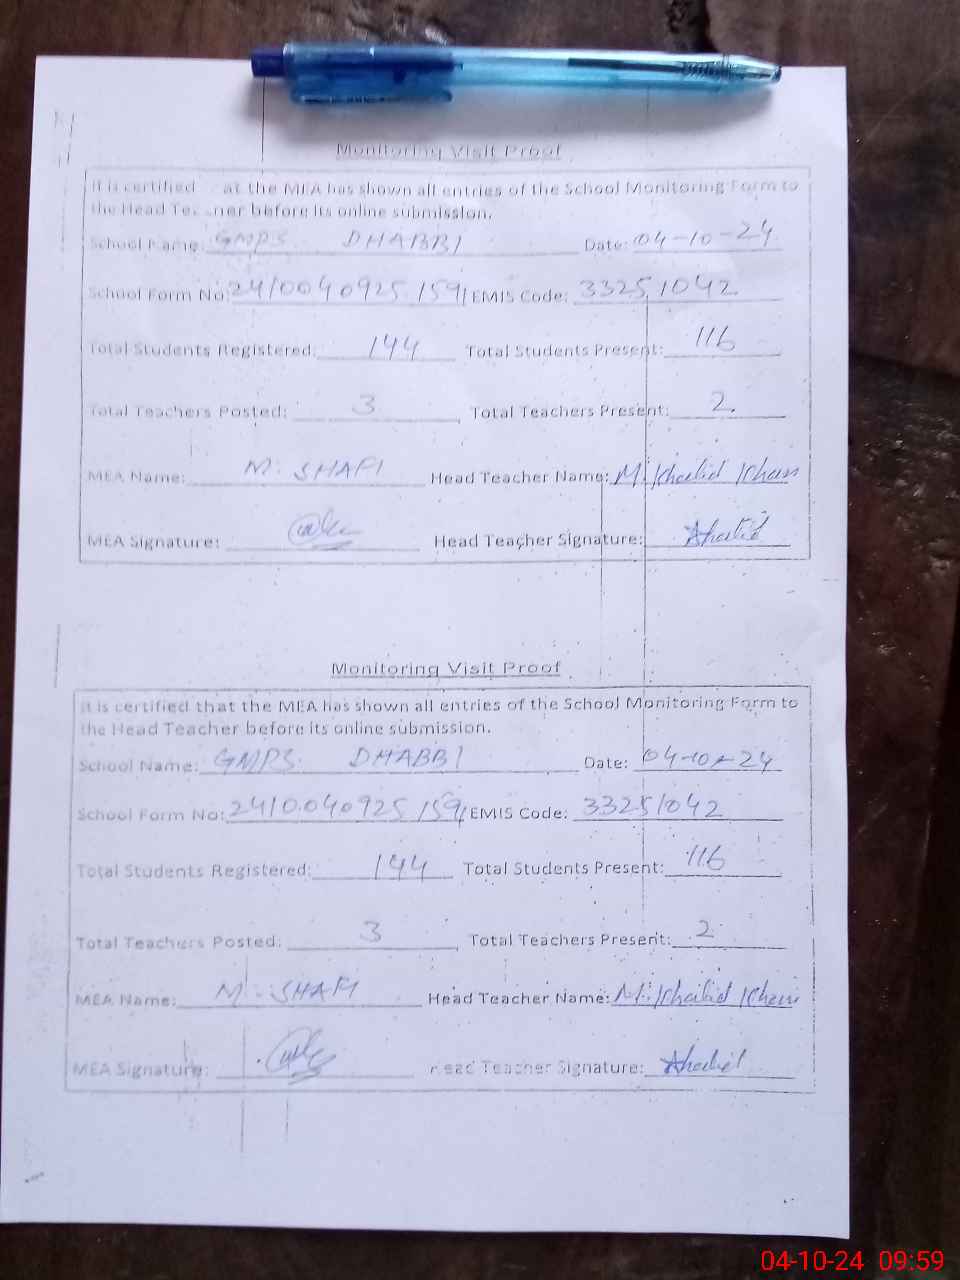 Monitoring Visit Proof
It is certified at the MEA has shown all entries of the School Monitoring Form to
the Head before its online submission.
School Name: GMPS DHABBI Date: 04-10-24
School Form No: 2410040925159 EMIS Code: 33251042
Total Students Registered: 144 Total Students Present: 116
Total Teachers Posted: 3 Total Teachers Present: 2
MEA Name: M. SHAFI Head Teacher Name: M. Khalid Khan
MEA Signature: Head Teacher Signature: Khalid
Monitoring Visit Proof
It is certified that the MEA has shown all entries of the School Monitoring Form to
the Head Teacher before its online submission.
School Name: GMPS DHABBI Date: 04-10-24
School Form No: 2410040925159 EMIS Code: 33251042
Total Students Registered: 144 Total Students Present: 116
Total Teachers Posted: 3 Total Teachers Present: 2
MEA Name: M. SHAFI Head Teacher Name: M. Khalid Khan
MEA Signature: Head Teacher Signature: Khalid
04-10-24 09:59